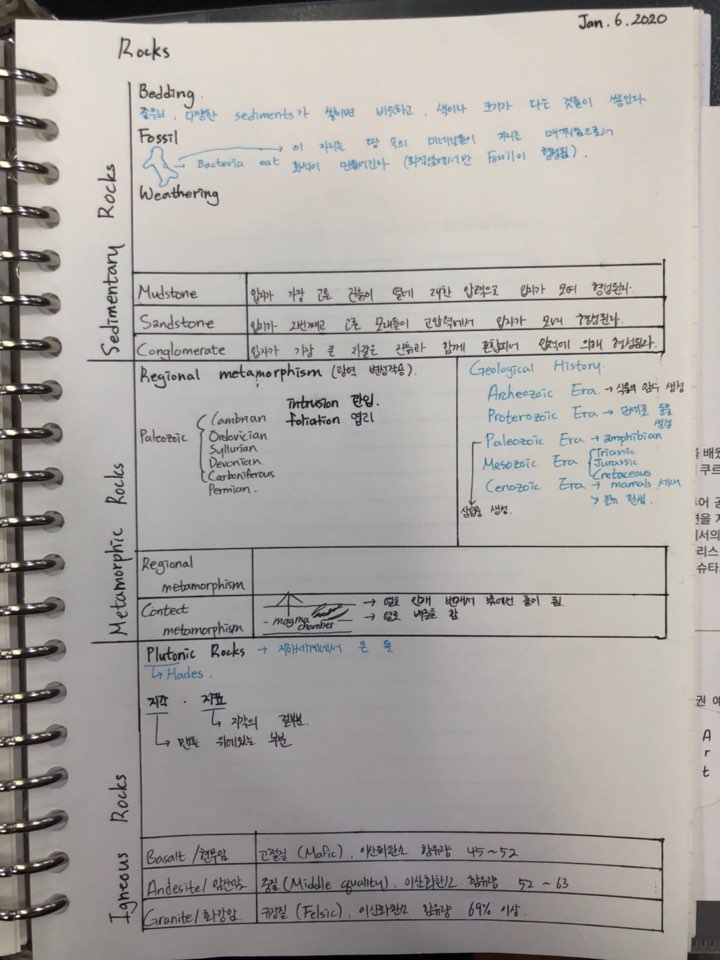 Jan. 6. 2020
Rocks
Sedimentary Rocks
Bedding
층리, 다양한 sediments가 쌓이면 비슷하고, 색이나 크기가 다른 것들이 쌓인다
Fossil
이 자리는 땅 속의 미네랄들이 자리를
Bacteria eat 화석이 만들어진다 (퇴적암에서만 Fossil이 형성됨).
Weathering
Mudstone 입자가 가장 고운 진흙이 열에 대한 압력으로 입자가 모여 형성된다.
Sandstone 입자가 2번째로 고운 모래들이 고압력에서 입자가 모여 형성된다.
Conglomerate 입자가 가장 큰 자갈은 진흙과 함께 혼합되어 압력에 의해 형성된다.
Metamorphic Rocks
Regional metamorphism (광역 변성작용)
intrusion 관입.
foliation 엽리
Paleozoic
Cambrian
Ordovician
Syllurian
Devonian
Carboniferous
Permian.
Geological History.
Archeozoic Era. →
Proterozoic Era → 단세포 동물
생성
Paleozoic Era → amphibian
Mesozoic Era
Triassic
Jurassic
Cretaceous
Cenozoic Era → mamals
생성.
Regional
metamorphism
Contect
metamorphism
magma
chamber
→ 열로
→ 열로
Igneous Rocks
Plutonic Rocks → 지하세계에서 온 돌
↳ Hades.
지각 · 지표
↳ 지각의 겉부분.
↳ 맨틀 위에있는 부분
Basalt / 현무암 고철질 (Mafic), 이산화탄소 함유량 45~52
Andesite / 안산암 중질 (Middle quality), 이산화탄소 함유량 52 ~ 63
Granite / 화강암 규장질 (Felsic), 이산화탄소 함유량 69% 이상.
배웠
쿠르
리스
슈타
권 예
A
r
t